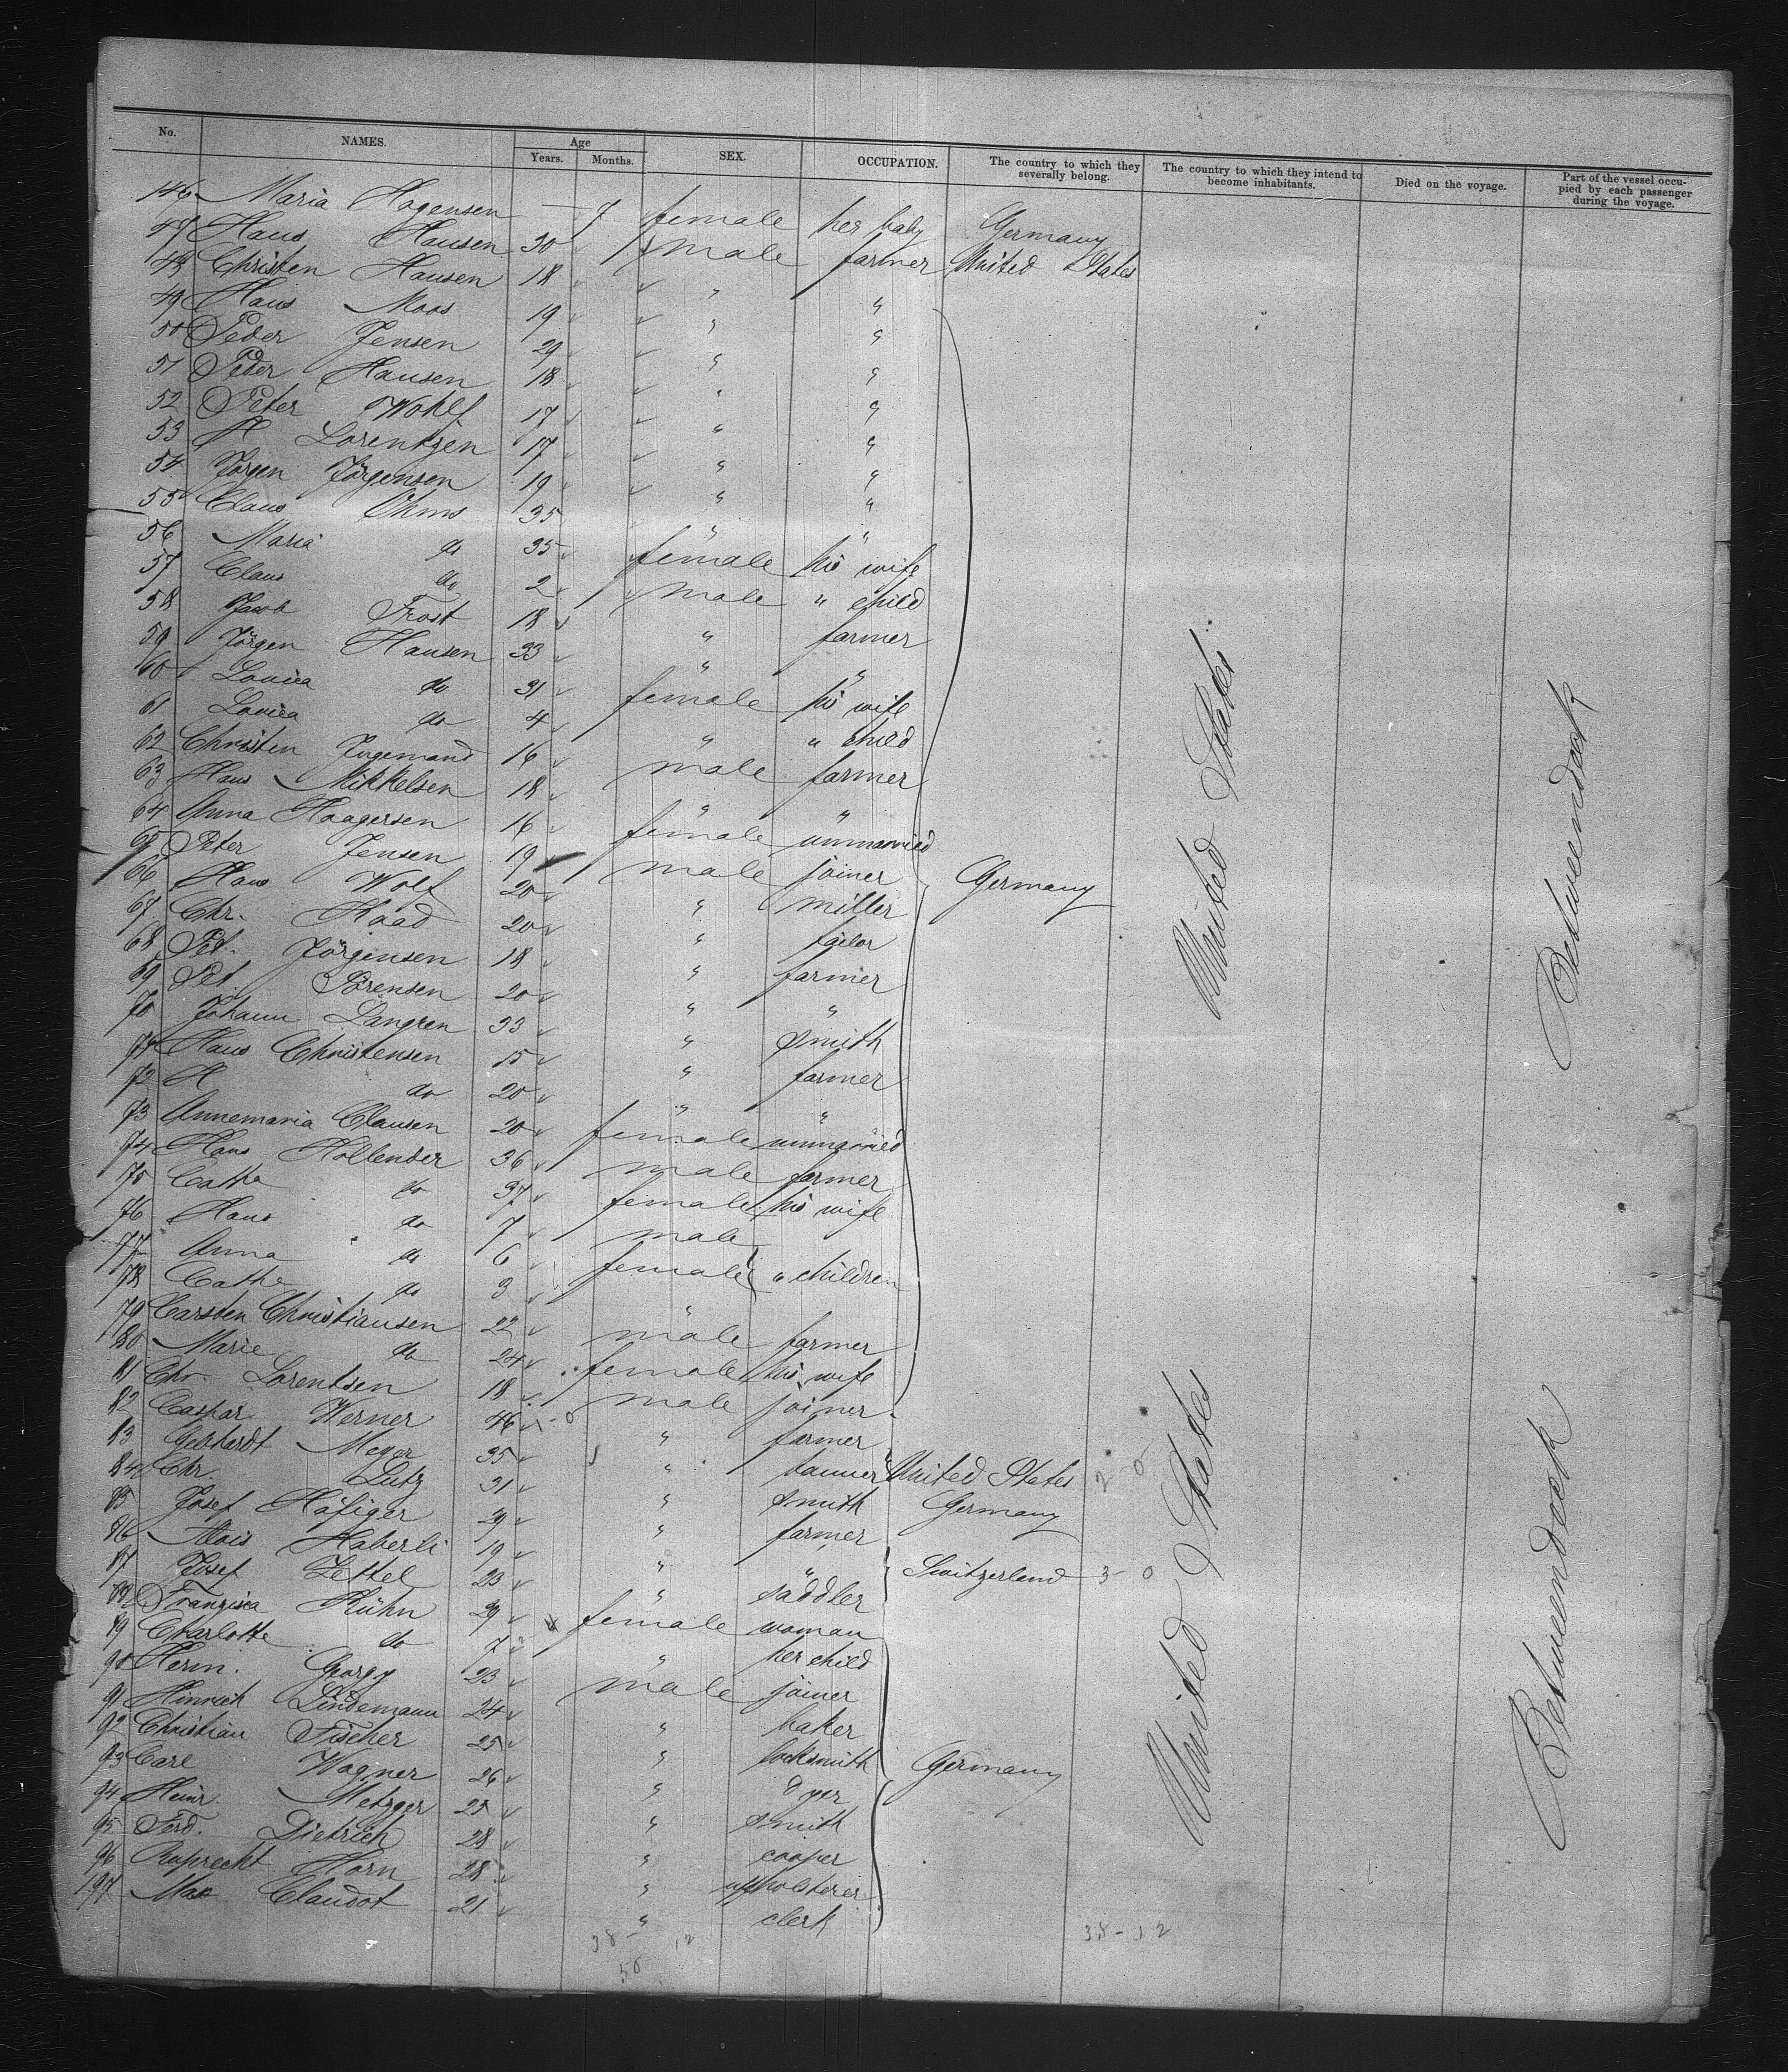 No. NAMES. Age Years. Months. SEX. OCCUPATION. The country to which they severally belong. The country to which they intend to become inhabitants. Died on the voyage. Part of the vessel occupied by each passenger during the voyage.
146 Maria Hagensen — 7 female her baby Germany
47 Hans Hansen 30 male farmer United States
48 Christen Hansen 18 " "
49 Hans Moos 19 " "
50 Peder Jensen 29 " "
51 Peder Hansen 18 " "
52 Peter Wohlf 17 " "
53 H Lorentzen 17 " "
54 Jörgen Jörgensen 19 " "
55 Claus Ohms 35 " "
56 Maria do 35 female his wife
57 Claus do 2 male " child
58 Jacob Frost 18 " farmer
59 Jörgen Hansen 33 " "
60 Louisa do 31 female his wife
61 Louisa do 4 " " child
62 Christen 16 male farmer
63 Hans Mikkelsen 18 " "
64 Anna Haagersen 16 female unmarried
65 Peter Jensen 19 male joiner Germany
66 Hans Wolf 20 " miller
67 Chr. Haad 20 " tailor
68 Pet. Jörgensen 18 " farmer
69 Pet. Sörensen 20 " "
70 Johann Langren 33 " smith
71 Hans Christensen 15 " farmer
72 H do 20 " "
73 Annemaria Clausen 20 female unmarried
74 Hans Hollender 36 male farmer
75 Cathe do 37 female his wife
76 Hans do 7 male
77 Anna do 6 female " children
78 Cathe do 3 "
79 Carsten Christiansen 22 male farmer
80 Marie do 24 female his wife
81 Chr. Lorentsen 18 male joiner
82 Caspar Werner 46 " farmer
83 Gebhardt Meyer 35 " tanner United States 2 0
84 Chr. Lutz 31 " smith Germany
85 Josef Häfiger 29 " farmer
86 Alois Haberli 19 " " Switzerland 3 - 0
87 Josef Zettel 23 " saddler
88 Franzisca Kühn 29 female woman
89 Charlotte do 7 " her child
90 Herm. Georgy 23 male joiner
91 Hinrich Lindemann 24 " baker
92 Christian Fischer 25 " locksmith Germany
93 Carl Wagner 26 " dyer
94 Heinr. Metzger 25 " smith
95 Ferd. Dietrich 28 " cooper
96 Ruprecht Horn 28 " upholsterer
197 Max Claudot 21 " clerk
38 - 12
50
38 - 12
United States
United States
Betweendeck
Betweendeck